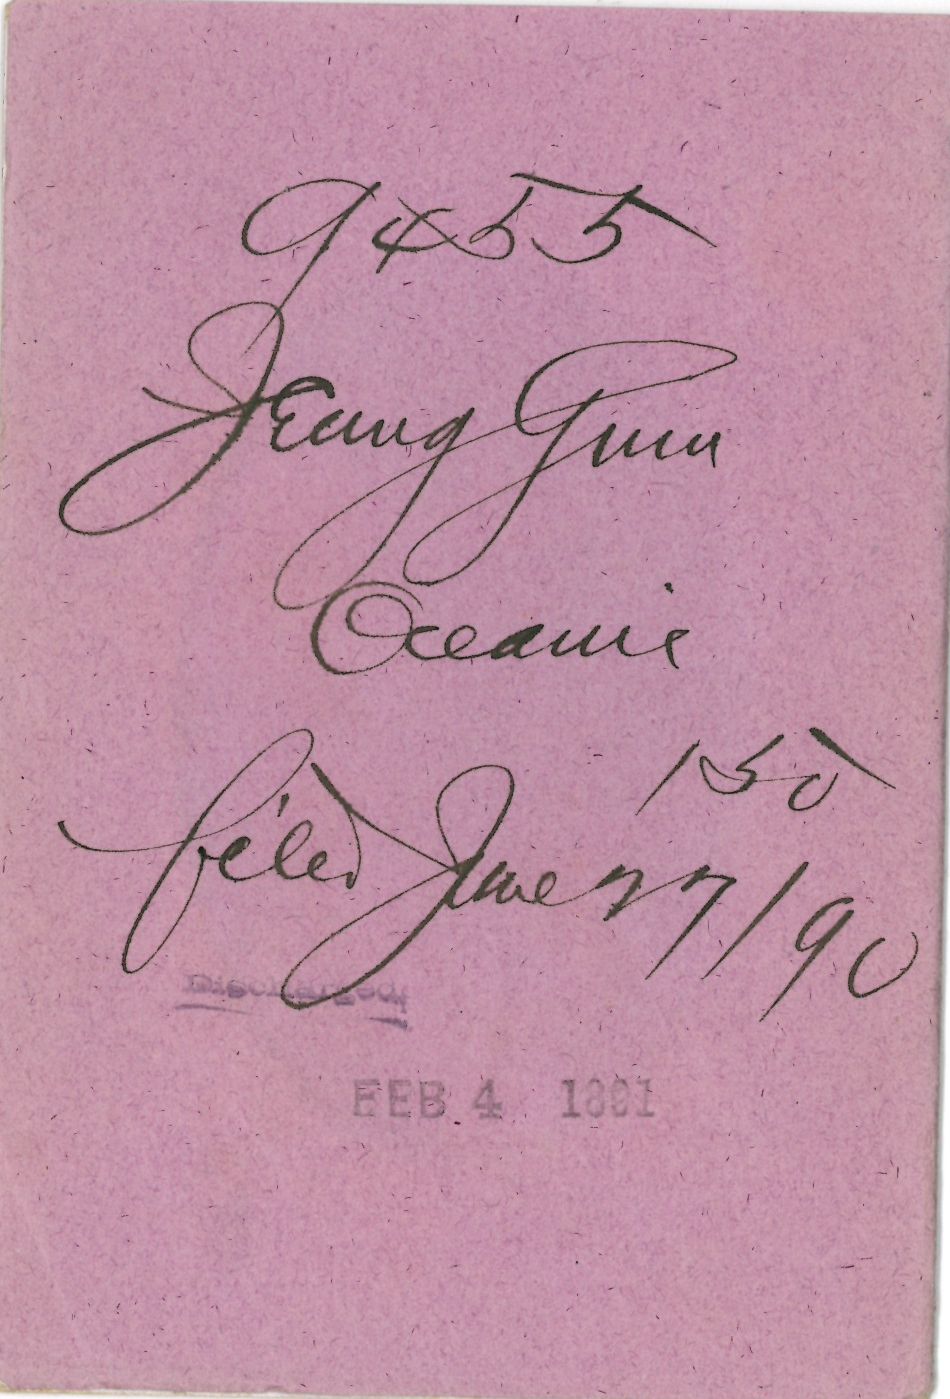 9455
Jeung Guin
Oceanic
150
filed June 27/90
Discharged
FEB 4 1891